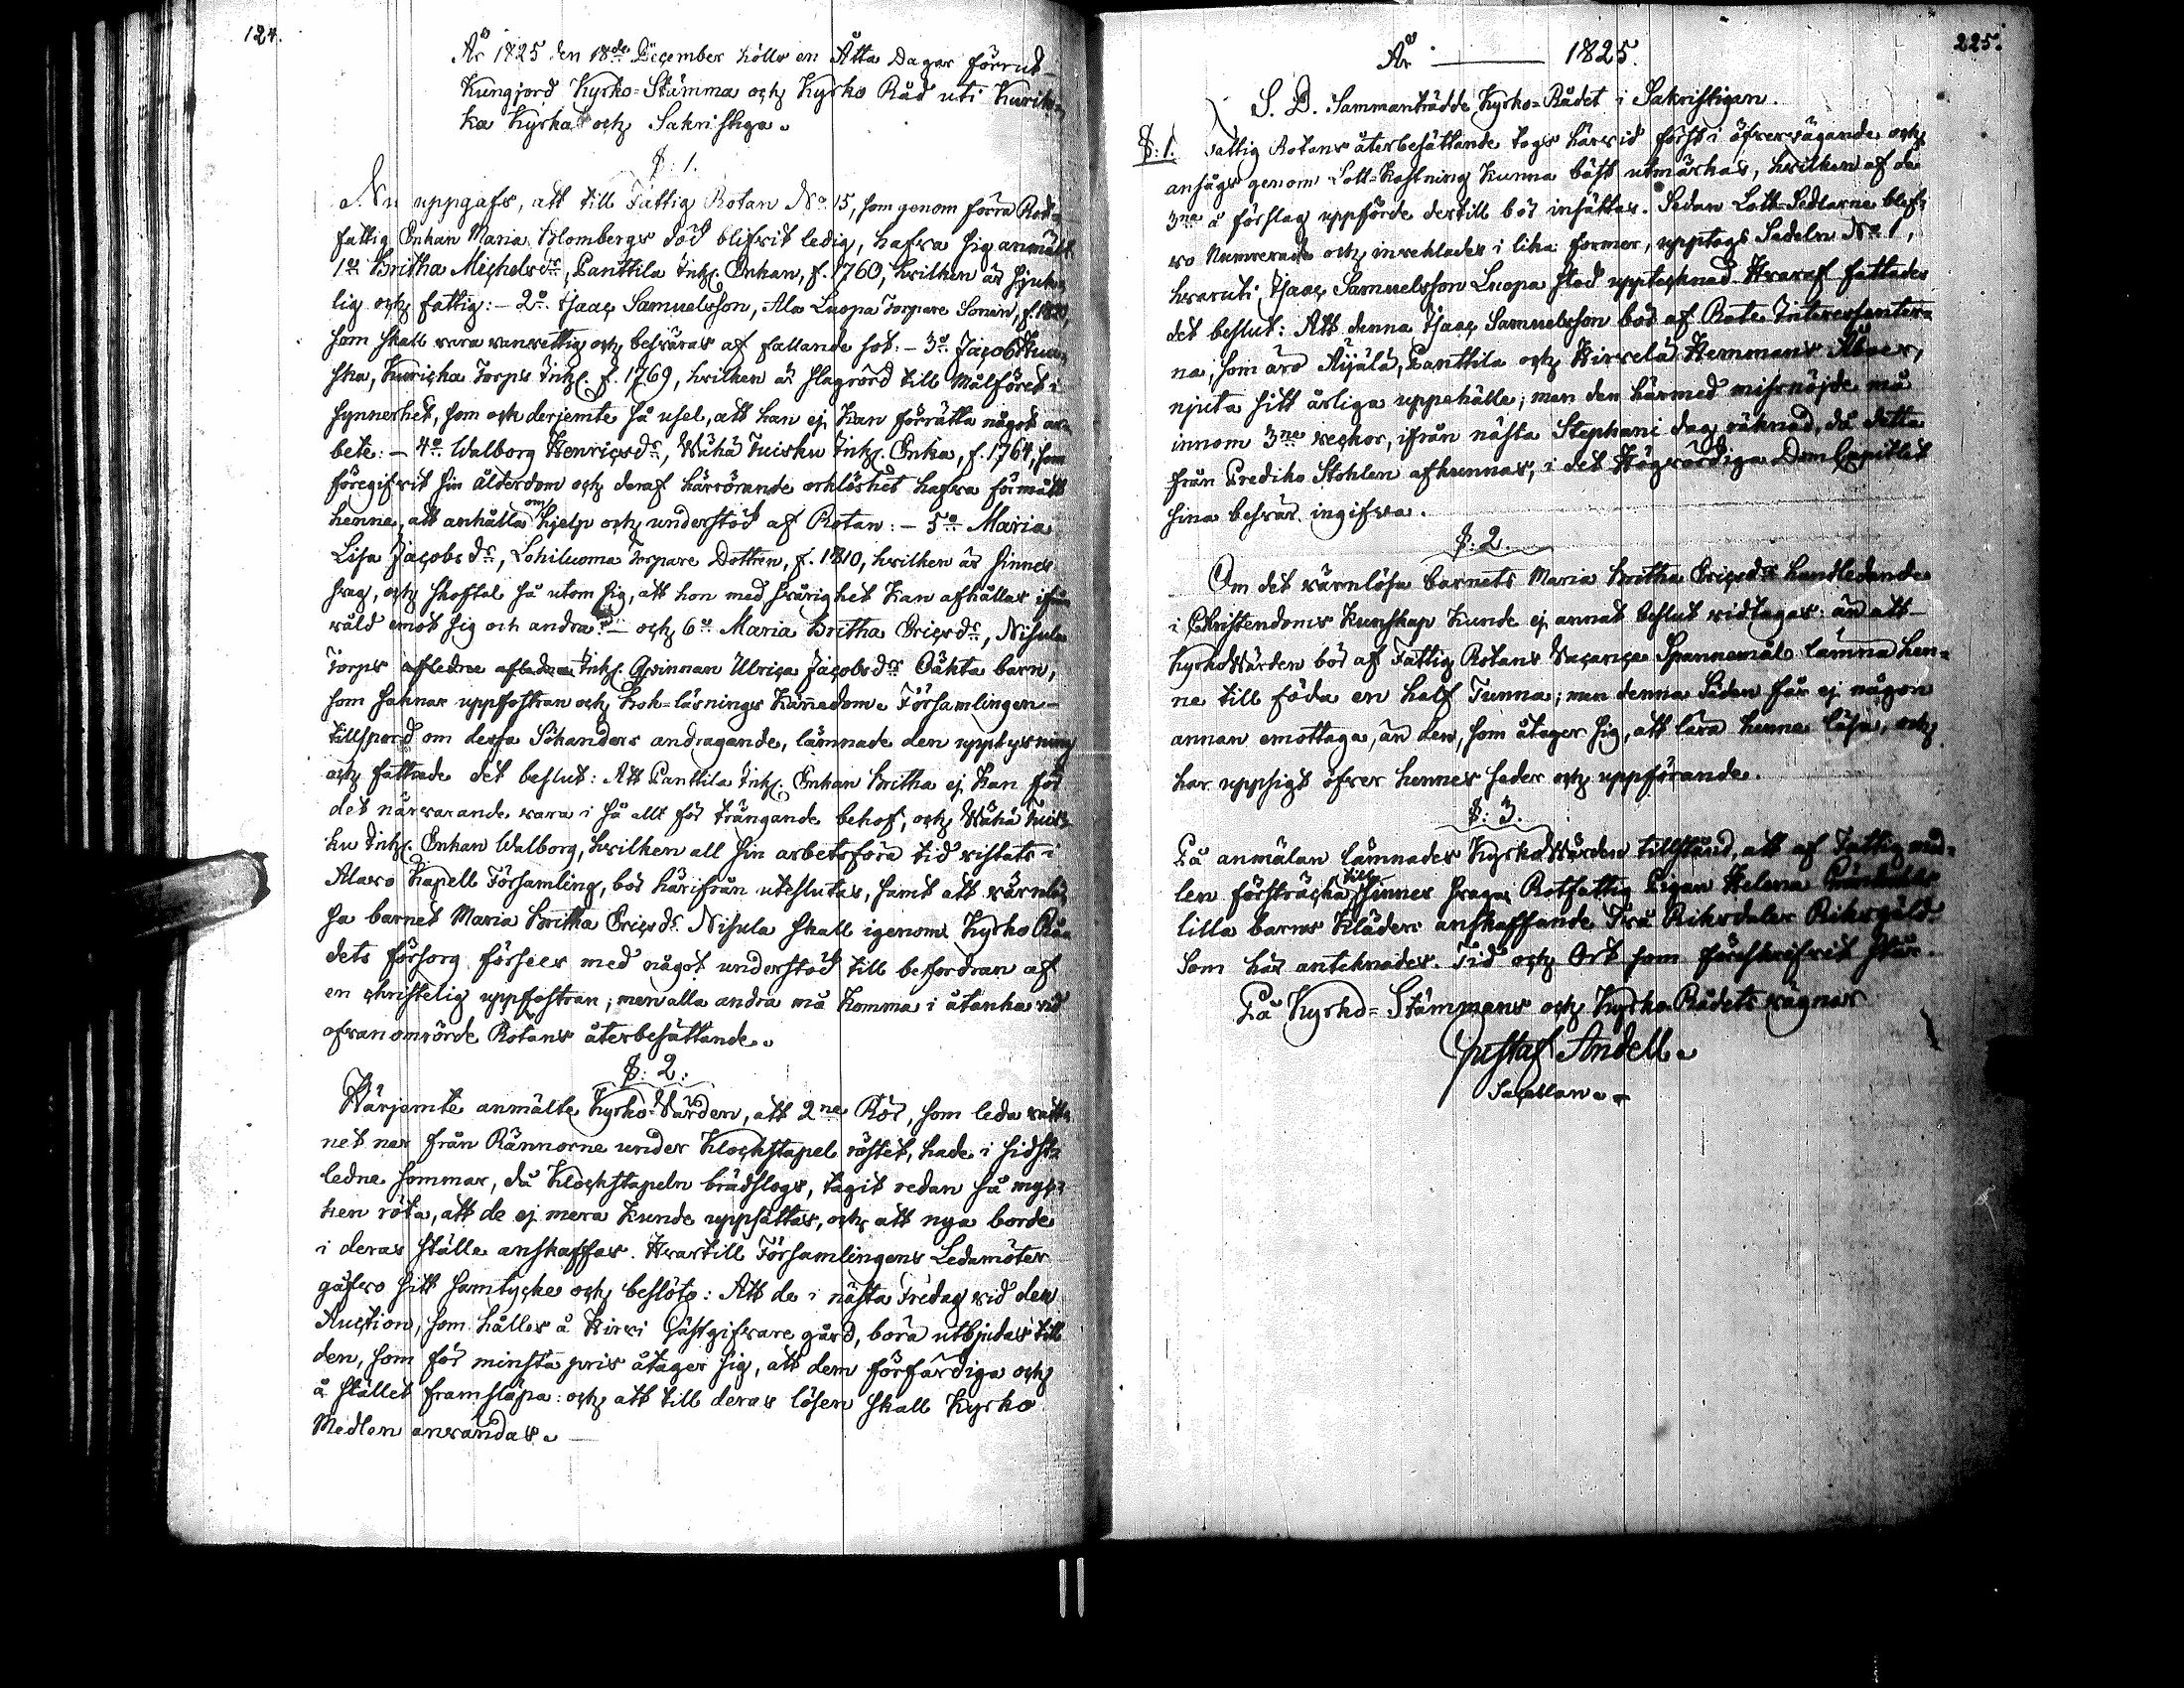 124.
År 1825 den 18de December hölls en Åtta Dagar förrut
Kungjord Kyrko=Stämma och Kyrko Råd uti Kurik=
ka Kyrka och Sakristiga.
§: 1.
Nu uppgafs, att till Fattig Rotan No 15, som genom förra Rot=
fattig Enkan Maria Blombergs död blifvit ledig, hafva sig anmält
1o Britha Michelsdr, Panttila Inhs. Enkan, f. 1760, hvilken är sjuk=
lig och fattig: – 2o. Isaac Samuelsson, Ala Luopa Torpare Sonen, f. 1820,
som skall vara vanvettig och besväras af fallande sot: – 3o. Jacob
ska, Kuricka Torps Inhs. f. 1769, hvilken är slagrörd till målföret i
synnerhet, som ock derjemte så usel, att han ej kan förrätta något ar=
bete: – 4o Walborg Henricsdr, Wähä Tuisku Inhs. Enka, f. 1764, som
föregifvit sin ålderdom och deraf härrörande orklöshet hafva förmått
henne, att anhålla om hjelp och understöd af Rotan: – 5o Maria
Lisa Jacobsdr, Lohiluoma Torpare Dottren, f. 1810, hvilken är sinnes
svag, och skoftal så utom sig, att hon med svårighet kan afhållas ifrån
våld emot sig och andra: – och 6o Maria Britha Ericsdr, Nisula
Torps Inhs. Qvinnan Ulrica Jacobsdr Oäkta barn,
som saknar uppfostran och bok=läsnings kännedom. Församlingen –
tillspord om dessa Sökanders andragande, lämnade den upplysning
och fattade det beslut: Att Panttila Inhs. Enkan Britha ej kan för
det närvarande vara i så allt för trängande behof, och Wähä Tuis=
ku Inhs. Enkan Walborg, hvilken all sin arbetsföra tid vistats i
Alavo Kapell Församling, bör härifrån uteslutas, samt att värnlö=
sa barnet Maria Britha Ericsdr Nisula skall igenom Kyrko Rå=
dets försorg försees med något understöd till befordran af
en christelig uppfostran; men alla andra må komma i åtanka vid
ofvanomrörde Rotans återbesättande.
§: 2:
Härjemte anmälte Kyrko=Värden, att 2ne Rör, som leda vatt=
net ner från Rännorne under Klockstapel röstet, hade i sidst=
ledne sommar, då Klockstapeln brädslogs, tagit redan så myc=
ken röta, att de ej mera kunde uppsättas, och att nya borde
i deras ställe anskaffas. Hvartill Församlingens Ledamöter
gåfvo sitt samtycke och beslöto: Att de i nästa Fredag vid den
Auction, som hålles å Hirvi Gästgifvare gård, böra utbjudas till
den, som för minsta pris åtager sig, att dem förfärdiga och
å stället framsläpa: och att till deras lösen skall Kyrko
Medlen användas. –
225.
År ——— 1825.
S. D. Sammanträdde Kyrko=Rådet i Sakristigan.
§: 1. Fattig Rotans återbesättande togs härvid först i öfvervägande och
ansågs genom Lott=Kastning kunna bäst utmärkas, hvilken af de
3ne å förslag uppförde dertill bör insättas. Sedan Lott=Sedlarne blef=
vo Numrerade och invecklades i lika former, upptogs Sedeln No 1,
hvaruti, Isaac Samuelsson Luopa stod upptecknad. Hvaraf fattades
det beslut: Att denna Isaac Samuelsson bör af Rote Interessenter=
na, som äro Äijälä, Panttila och Hirvelä Hemmans Åboer,
njuta sitt årliga uppehälle; men den härmed missnöjde må
innom 3ne veckor, ifrån nästa Stephani dag räknad, då detta
från Prediko Stohlen afkunnas, i det Högvördiga Dom Capitlet
sina besvär ingifva.
§: 2.
Om det värnlösa barnets Maria Britha Ericsdr handledande
i Christendoms kunskap kunde ej annat beslut vidtagas: än att
Kyrko Värden bör af Fattig Rotans Vacance Spannemål lämna hen=
ne till föda en half Tunna; men denna Säden får ej någon
annan emottaga, än den, som åtager sig, att lära henne läsa, och
har uppsigt öfver hennes seder och uppförande.
§: 3.
På anmälan lämnades Kyrko Värden tillstånd, att af Fattig med=
len försträcka till sinnes svaga Rotfattig Pigan Helena
lilla barns kläders anskaffande Två Riksdaler Riksgäld.
Som här antecknades. Tid och Ort som förskrifvit står.
På Kyrko=Stämmans och Kyrko Rådets vägnar
Gustaf Andell.
Sacellan.